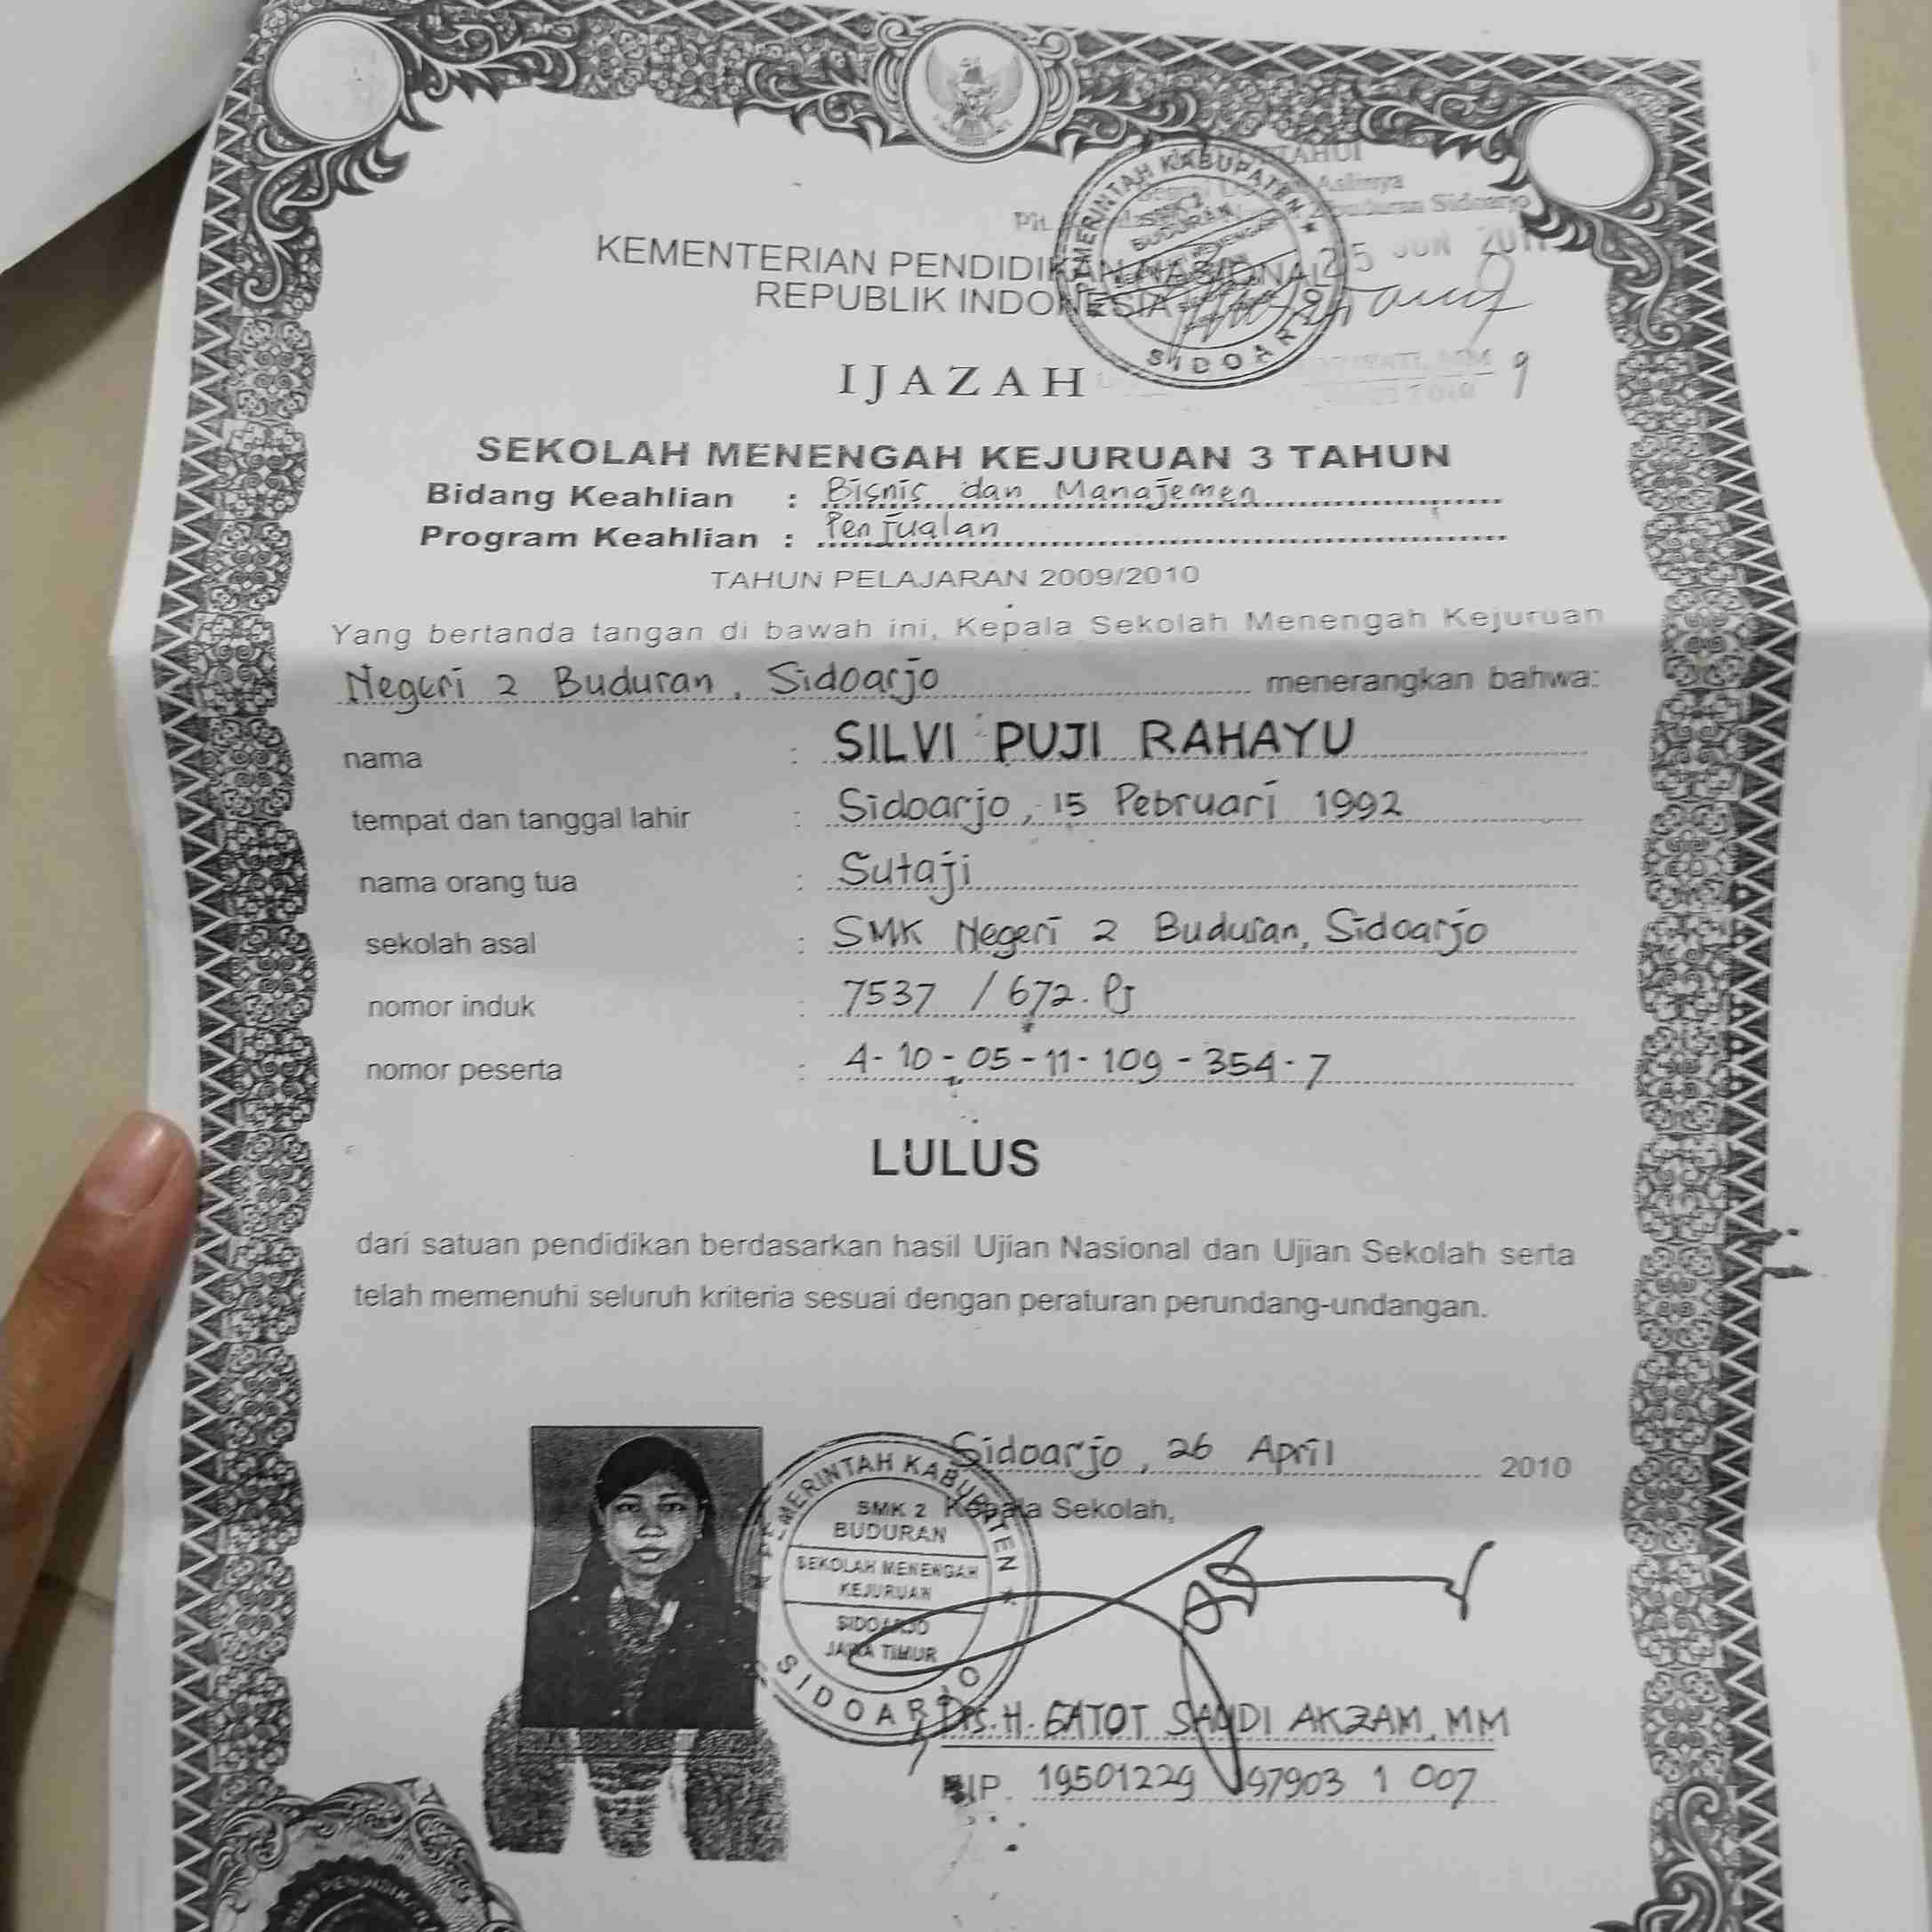 KEMENTERIAN PENDIDIKAN NASIONAL
REPUBLIK INDONESIA
Aslinya
Buduran Sidoarjo
25 JUN 201
PEMERINTAH KABUPATEN
SMK 2
BUDURAN
SIDOARJO
IJAZAH
SEKOLAH MENENGAH KEJURUAN 3 TAHUN
Bidang Keahlian : Bisnis dan Manajemen
Program Keahlian : Penjualan
TAHUN PELAJARAN 2009/2010
Yang bertanda tangan di bawah ini, Kepala Sekolah Menengah Kejuruan
Negeri 2 Buduran, Sidoarjo menerangkan bahwa:
nama : SILVI PUJI RAHAYU
tempat dan tanggal lahir : Sidoarjo, 15 Pebruari 1992
nama orang tua : Sutaji
sekolah asal : SMK Negeri 2 Buduran, Sidoarjo
nomor induk : 7537 / 672. Pj
nomor peserta : 4-10-05-11-109-354-7
LULUS
dari satuan pendidikan berdasarkan hasil Ujian Nasional dan Ujian Sekolah serta
telah memenuhi seluruh kriteria sesuai dengan peraturan perundang-undangan.
Sidoarjo, 26 April 2010
Kepala Sekolah,
PEMERINTAH KABUPATEN
SMK 2
BUDURAN
SEKOLAH MENENGAH
KEJURUAN
SIDOARJO
JAWA TIMUR
SIDOARJO
Drs. H. GATOT SAUDI AKZAM, MM
NIP. 19501229 197903 1 007